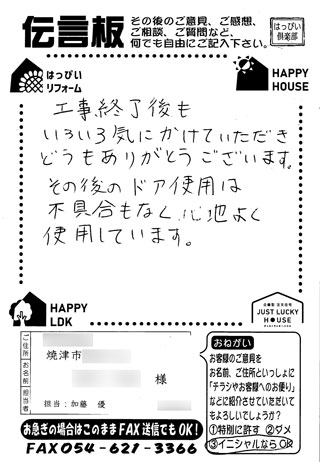 伝言板
その後のご意見、ご感想、
ご相談、ご質問など、
何でも自由にご記入下さい。
はっぴい
倶楽部
はっぴい
リフォーム
HAPPY
HOUSE
工事終了後も
いろいろ気にかけていただき
どうもありがとうございます。
その後のドア使用は
不具合もなく、心地よく
使用しています。
HAPPY
LDK
JUST LUCKY
HOUSE
ご住所
お名前
担当者
焼津市
様
担当:加藤 優
おねがい
お客様のご意見を
お名前、ご住所といっしょに
「チラシやお客様へのお便り」
などに紹介させていただいて
もよろしいでしょうか?
①特別に許す ②ダメ
③イニシャルなら OK
お急ぎの場合はこのまま FAX 送信でも OK!
FAX 054-621-3366